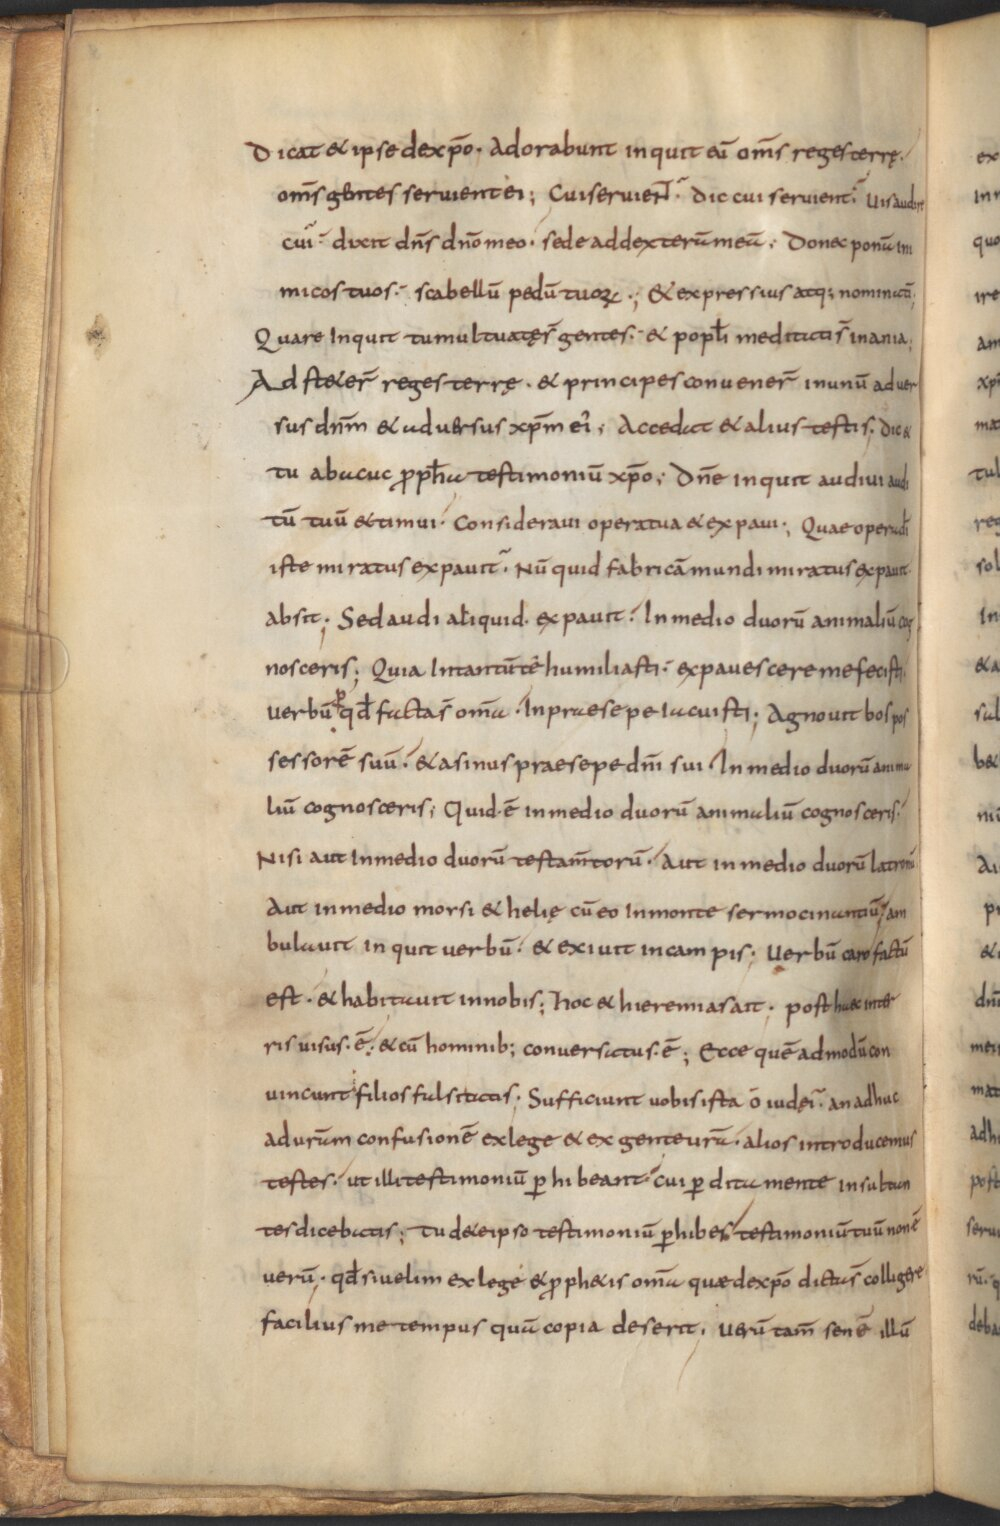 Dicat & ipse de xp̄o · Adorabunt inquit eū om̄s reges terrę ·
om̄s gentes servient ei ; Cui servient · Dic cui servient · Uis audire
cui · dixit dn̄s dn̄o meo · sede ad dexterū meū ; Donec ponū ini
micos tuos · scabellū pedū tuoꝝ ; & expressius atq; nominatī ;
Quare Inquit tumultuatę sr̄ gentes · & popłi meditati sr̄ inania ;
Adsteter̄ reges terrę · & principes convener̄ inunū adver
sus dn̄m & adversus xp̄m ei ; Accedat & alius testis ; Dic &
tu abacuc ꝓph̄a testimoniū xp̄o ; Dn̄e inquit audivi audi
tū tuū & timui · Consideravi opera tua & expavi ; Quae opera dī
iste miratus expavit · Nū quid fabricā mundi miratus expavit
absit ; Sed audi aliquid · expavit · In medio duorū animaliū cog
nosceris ; Quia Intantū te humiliasti · expavescere me fecisti ·
verbū ꝑ qd̄ facta s̄ om̄a · In praesepe Iacuisti ; Agnovit bos pos
sessorē suū · & asinus praesepe dn̄i sui · In medio duorū anima
liū cognosceris ; Quid · ē in medio duorū animaliū cognosceris ·
Nisi aut Inmedio duorū testam̄torū · Aut in medio duorū latronū
Aut in medio morsi & helię cū eo Inmonte sermocinantiū · am
bulavit inquit verbū · & exivit incampis ; Verbū caro factū
est · & habitavit innobis ; hoc & hieremias ait · post haec inter
ris visus · ē · & cū hominib; conversatus · ē ; Ecce quē admodū con
vincunt filios falsitatis ; Sufficiunt vobis ista ō iudęi · an adhuc
ad vr̄am confusionē ex lege & ex gente vr̄a · alios introducemus
testes · ut illi testimoniū ꝑhibeant · cui ꝑdita mente insultan
tes dicebatis ; tu de te ipso testimoniū ꝑhibes testimoniū tuū non ē
verū · qd̄ si velim ex lege & ꝓphetis om̄a quae de xp̄o dicta s̄ colligere
facilius me tempus quā copia deserit ; Verū tam̄ senē illū